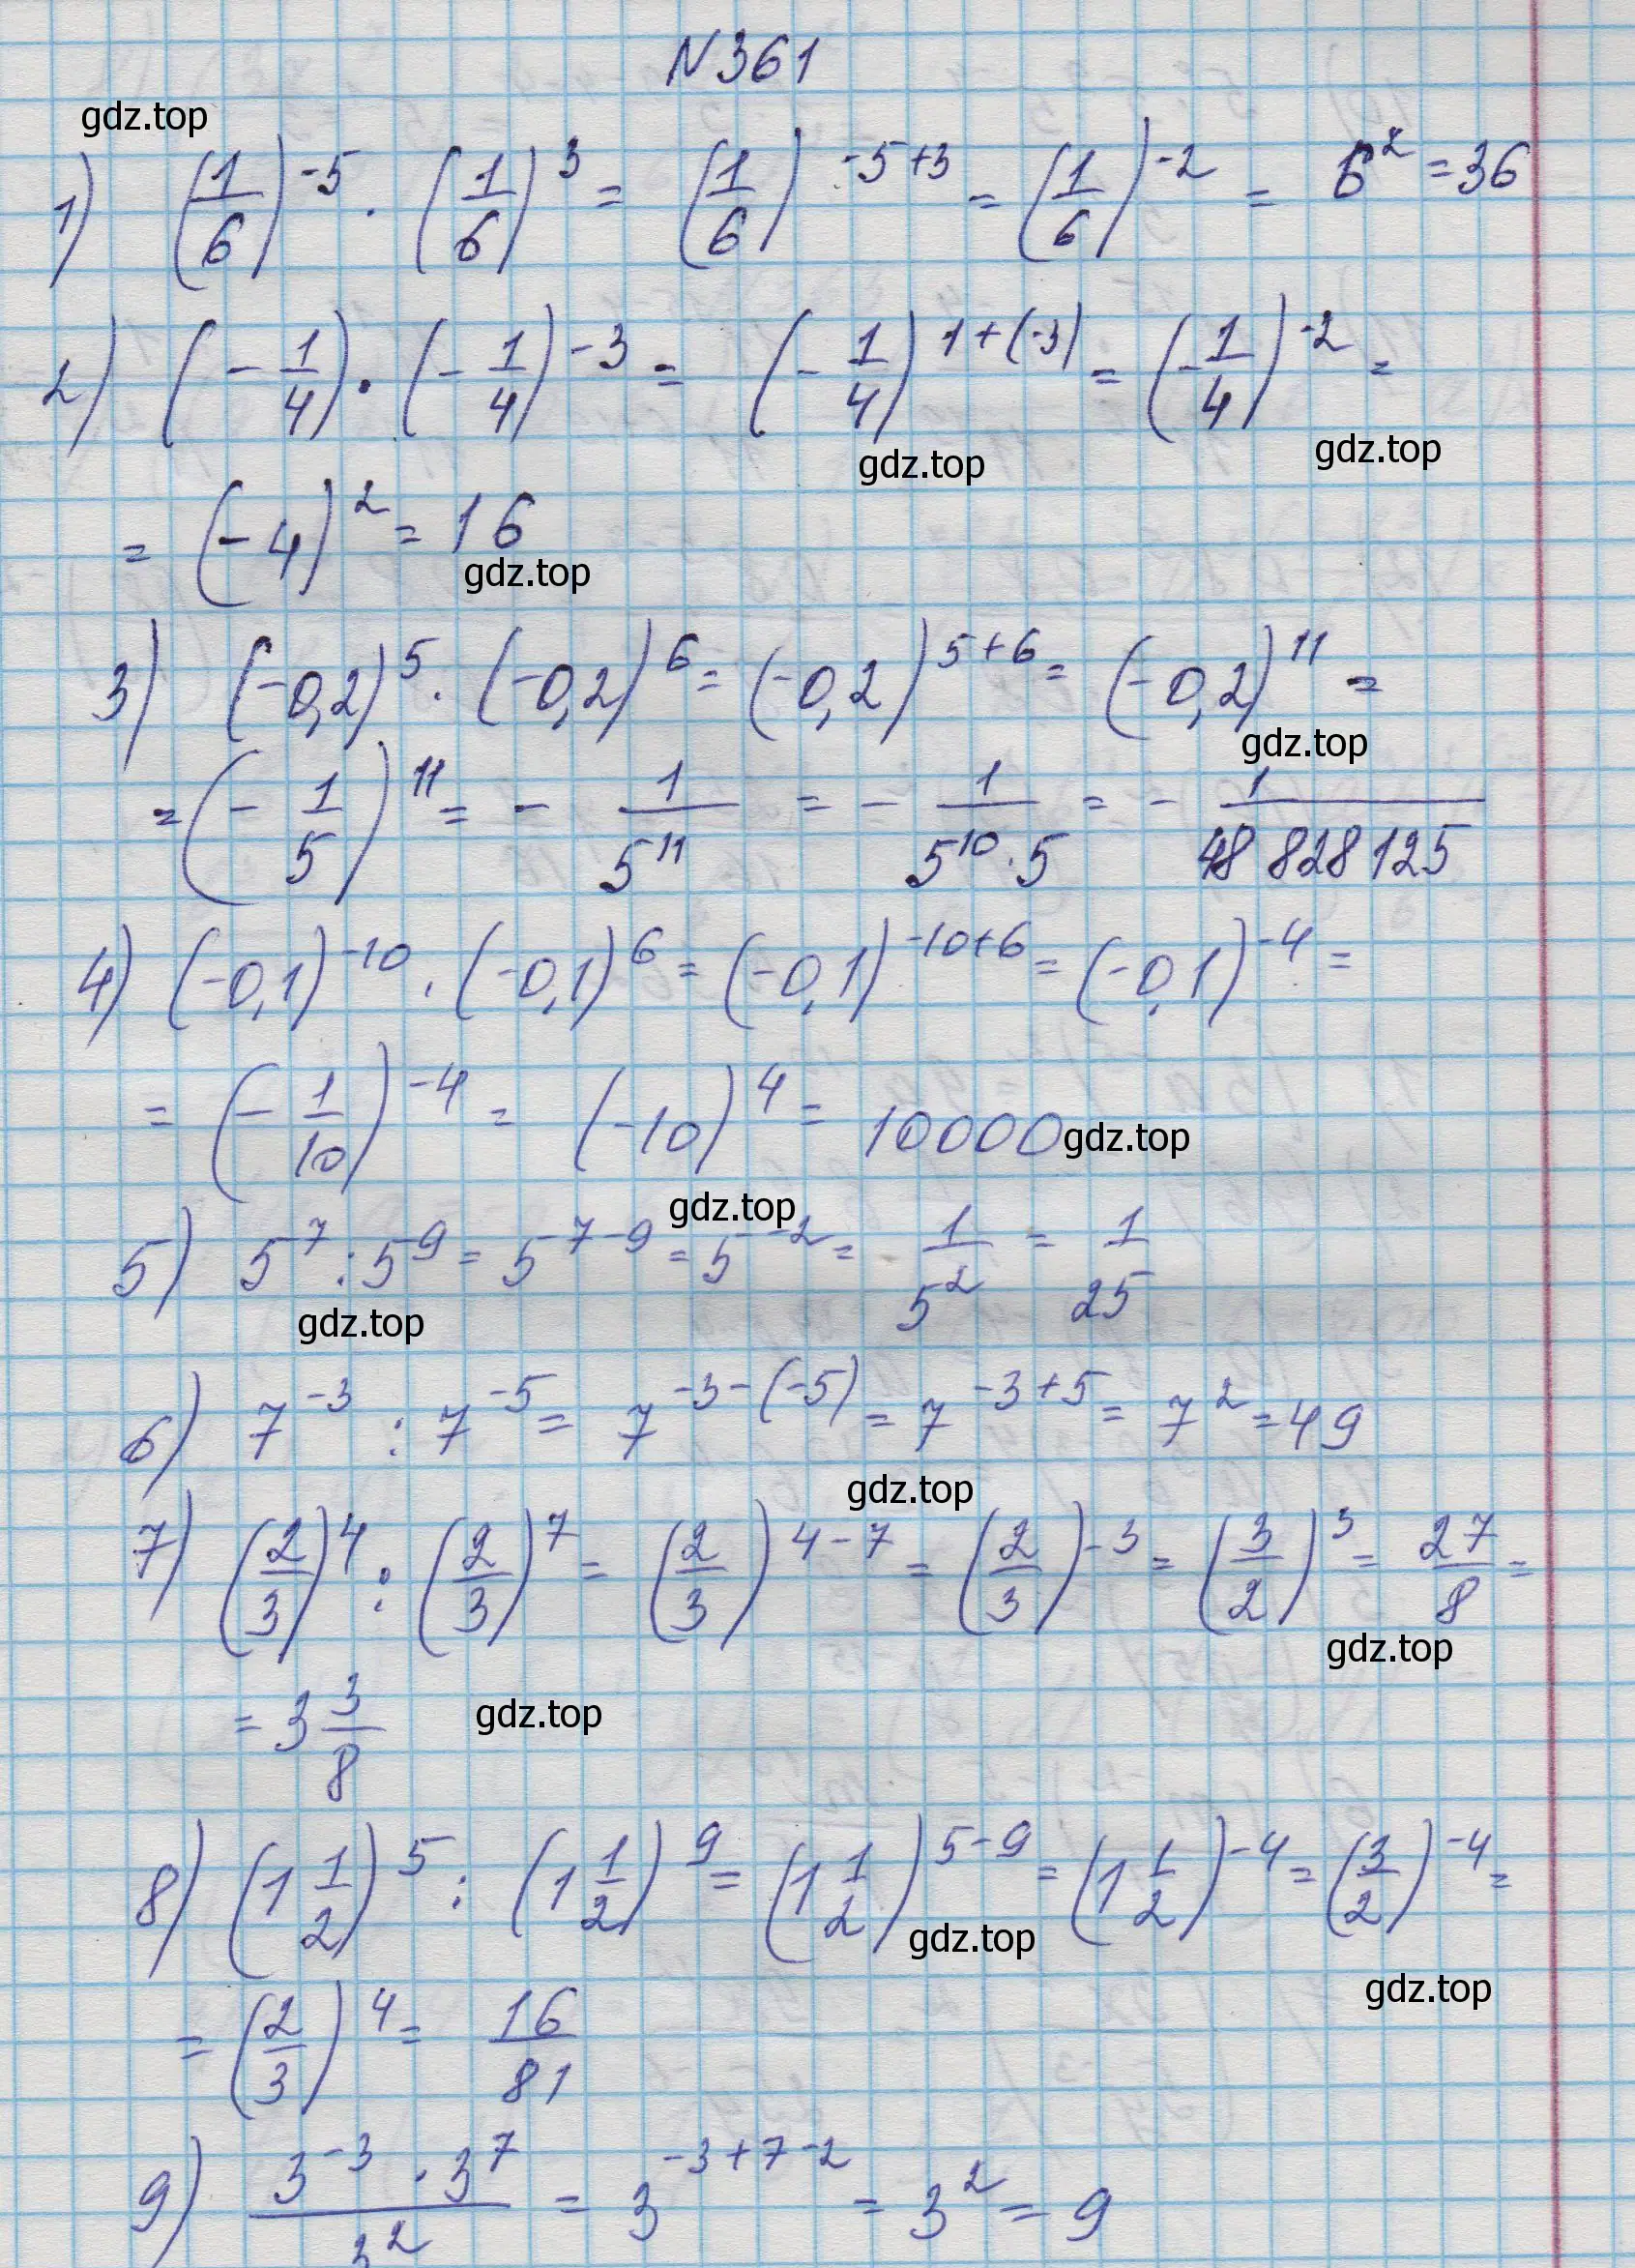 N 361
gdz.top
1) (1/6)^-5 · (1/6)^3 = (1/6)^-5+3 = (1/6)^-2 = 6^2 = 36
2) (-1/4) · (-1/4)^-3 = (-1/4)^1+(-3) = (-1/4)^-2 =
gdz.top gdz.top
= (-4)^2 = 16
gdz.top
3) (-0,2)^5 · (-0,2)^6 = (-0,2)^5+6 = (-0,2)^11 =
gdz.top
= (-1/5)^11 = - 1/5^11 = - 1/(5^10 · 5) = - 1/48 828 125
4) (-0,1)^-10 · (-0,1)^6 = (-0,1)^-10+6 = (-0,1)^-4 =
= (-1/10)^-4 = (-10)^4 = 10000 gdz.top
gdz.top
5) 5^7 : 5^9 = 5^7-9 = 5^-2 = 1/5^2 = 1/25
gdz.top
6) 7^-3 : 7^-5 = 7^-3-(-5) = 7^-3+5 = 7^2 = 49
gdz.top
7) (2/3)^4 : (2/3)^7 = (2/3)^4-7 = (2/3)^-3 = (3/2)^3 = 27/8 =
gdz.top
= 3 3/8 gdz.top
8) (1 1/2)^5 : (1 1/2)^9 = (1 1/2)^5-9 = (1 1/2)^-4 = (3/2)^-4 =
gdz.top gdz.top
= (2/3)^4 = 16/81
9) (3^-3 · 3^7)/3^2 = 3^-3+7-2 = 3^2 = 9